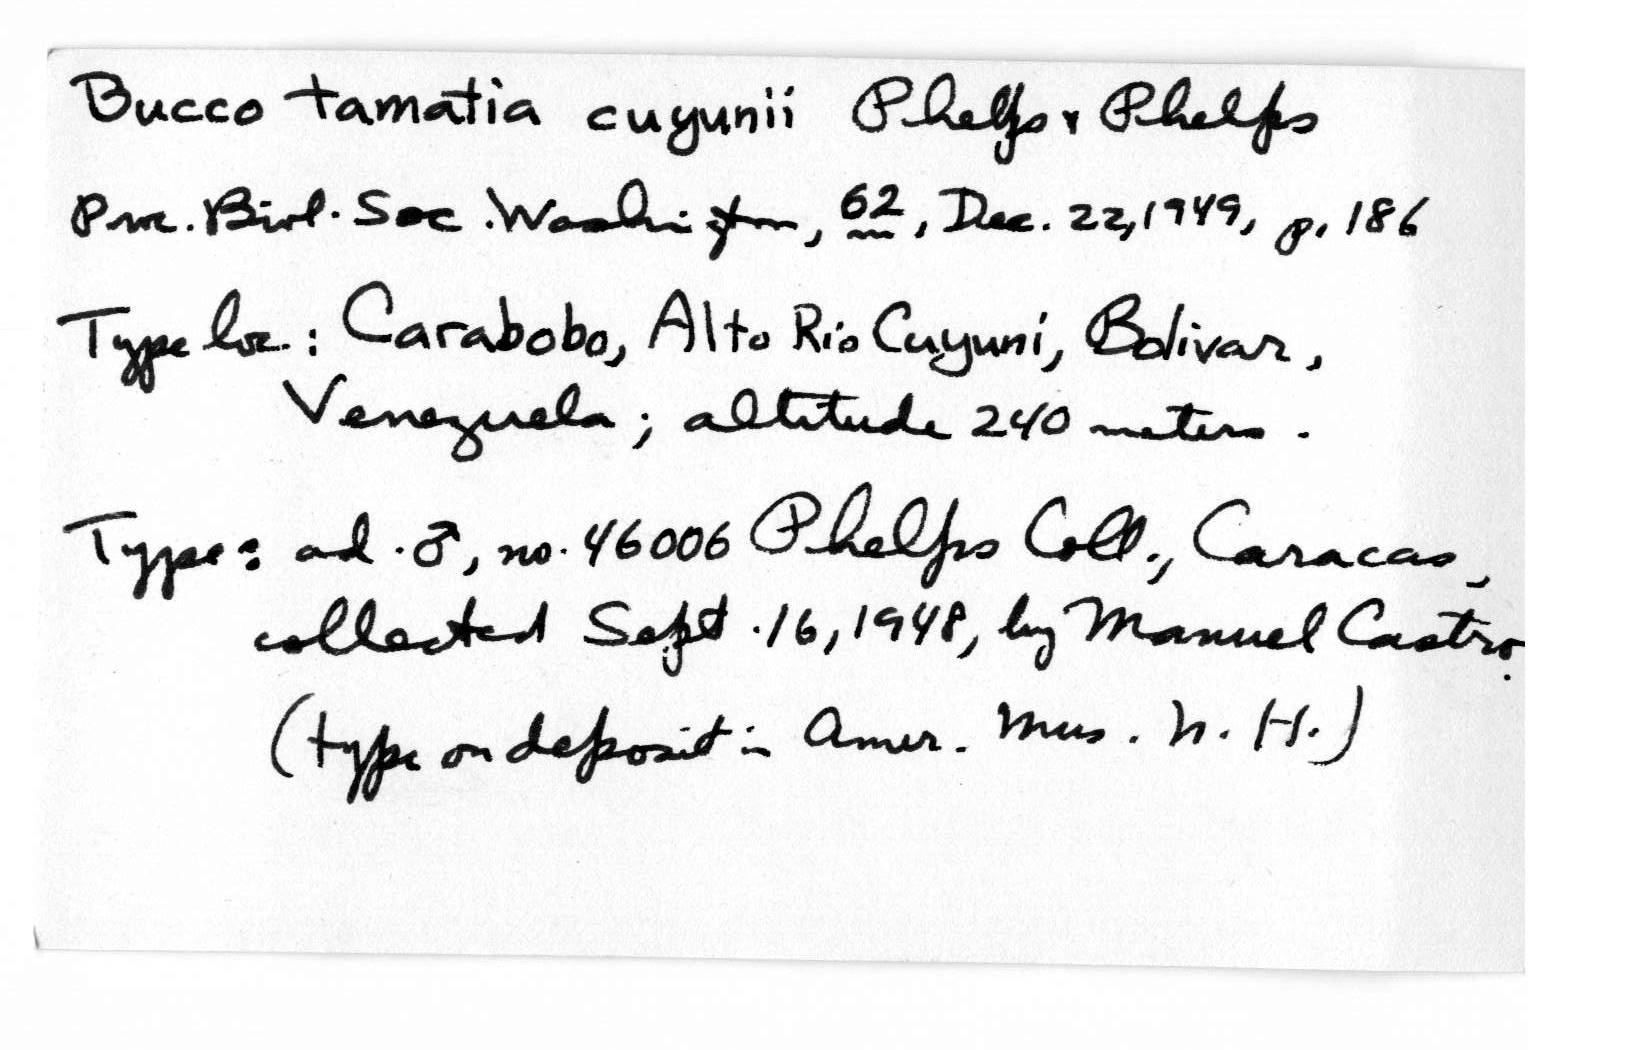 Bucco tamatia cuyunii Phelps & Phelps
Proc. Biol. Soc. Washington, 62, Dec. 22, 1949, p. 186
Type loc.: Carabobo, Alto Rio Cuyuni, Bolivar,
Venezuela; altitude 240 meters.
Type: ad. ♂, no. 46006 Phelps Coll., Caracas,
collected Sept. 16, 1948, by Manuel Castro.
(type on deposit in Amer. Mus. N. H.)